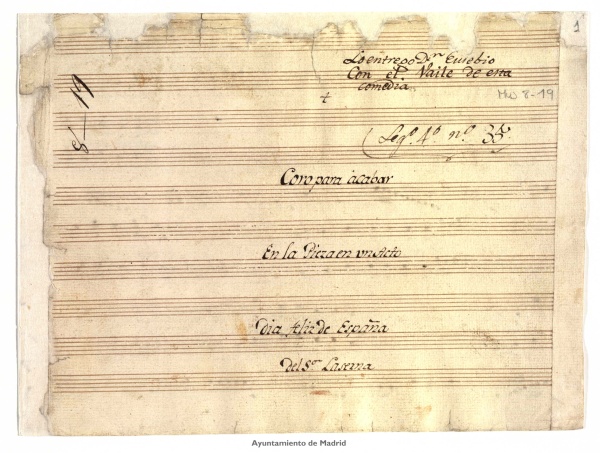 1
Lo entrego Dn Eusebio
Con el Vaile de esta
comedia.
Mus 8-19
8-19
Legº. 4º. nº. 35.
Coro para acabar
En la Pieza en un Acto
Dia feliz de España
Del Sor Laserna
Ayuntamiento de Madrid